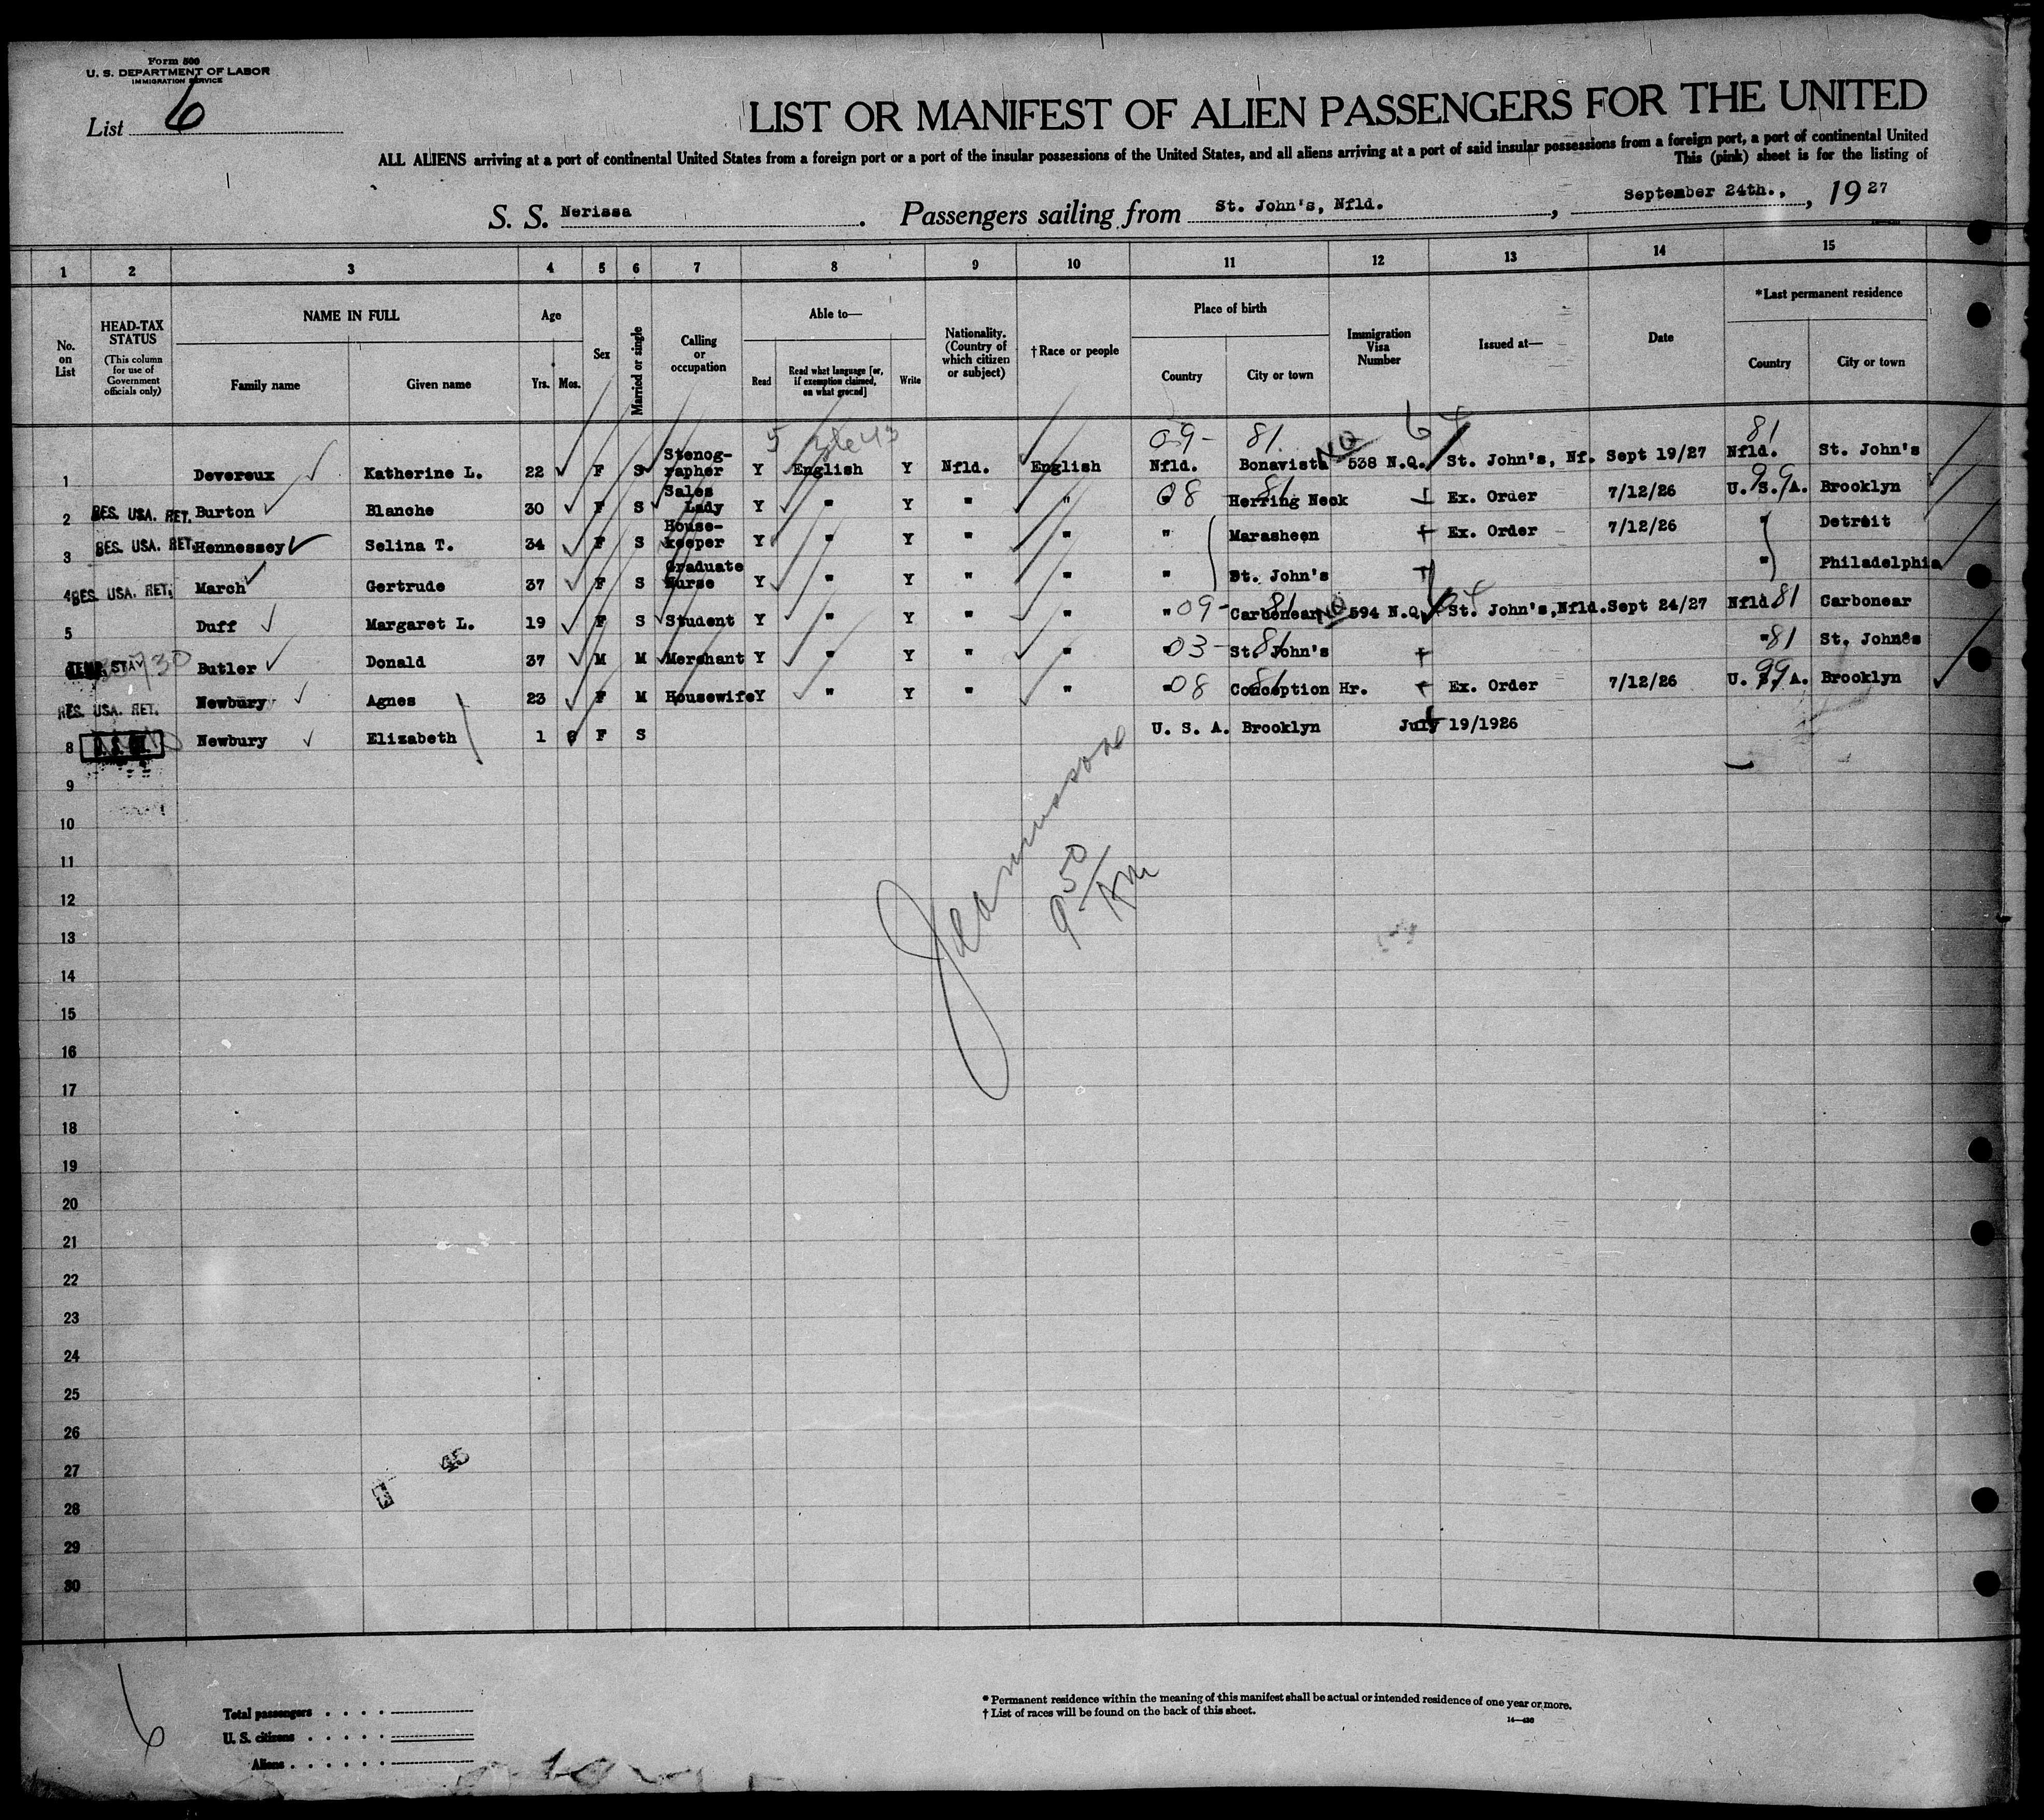 Form 500
U. S. DEPARTMENT OF LABOR
IMMIGRATION SERVICE
List 6
LIST OR MANIFEST OF ALIEN PASSENGERS FOR THE UNITED
ALL ALIENS arriving at a port of continental United States from a foreign port or a port of the insular possessions of the United States, and all aliens arriving at a port of said insular possessions from a foreign port, a port of continental United
This (pink) sheet is for the listing of
S. S. Nerissa. Passengers sailing from St. John's, Nfld., September 24th., 1927
1 2 3 4 5 6 7 8 9 10 11 12 13 14 15
No. on List
HEAD-TAX STATUS
(This column for use of Government officials only)
NAME IN FULL
Family name
Given name
Age
Yrs. Mos.
Sex
Married or single
Calling or occupation
Able to—
Read
Read what language [or, if exemption claimed, on what ground]
Write
Nationality. (Country of which citizen or subject)
†Race or people
Place of birth
Country
City or town
Immigration Visa Number
Issued at—
Date
*Last permanent residence
Country
City or town
5 09- 81 64 81
1 Devereux Katherine L. 22 F S Stenog-rapher Y English Y Nfld. English Nfld. Bonavista NQ 538 N.Q. St. John's, Nf. Sept 19/27 Nfld. St. John's
2 RES. USA. RET. Burton Blanche 30 F S Sales Lady Y " Y " " " 08 Herring Neck 81 Ex. Order 7/12/26 U. S. A. 99 Brooklyn
3 RES. USA. RET. Hennessey Selina T. 34 F S House-keeper Y " Y " " " Marasheen Ex. Order 7/12/26 " Detroit
4 RES. USA. RET. March Gertrude 37 F S Graduate Nurse Y " Y " " " St. John's " Philadelphia
5 Duff Margaret L. 19 F S Student Y " Y " " " 09- Carbonear 81 NQ 594 N.Q. 64 St. John's,Nfld. Sept 24/27 Nfld 81 Carbonear
TEMP. STAY 30 Butler Donald 37 M M Merchant Y " Y " " " 03- St. John's 81 " 81 St. Johnes
RES. USA. RET. Newbury Agnes 23 F M Housewife Y " Y " " " 08 Conception Hr. 81 Ex. Order 7/12/26 U. S. A. 99 Brooklyn
8 Newbury Elizabeth 1 6 F S U. S. A. Brooklyn July 19/1926
9
10
11
12
9 50 AM
13
14
15
16
17
18
19
20
21
22
23
24
25
26
27
45
28
29
30
6
Total passengers . . . .
U. S. citizens . . . . .
Aliens . . . . . .
* Permanent residence within the meaning of this manifest shall be actual or intended residence of one year or more.
† List of races will be found on the back of this sheet.